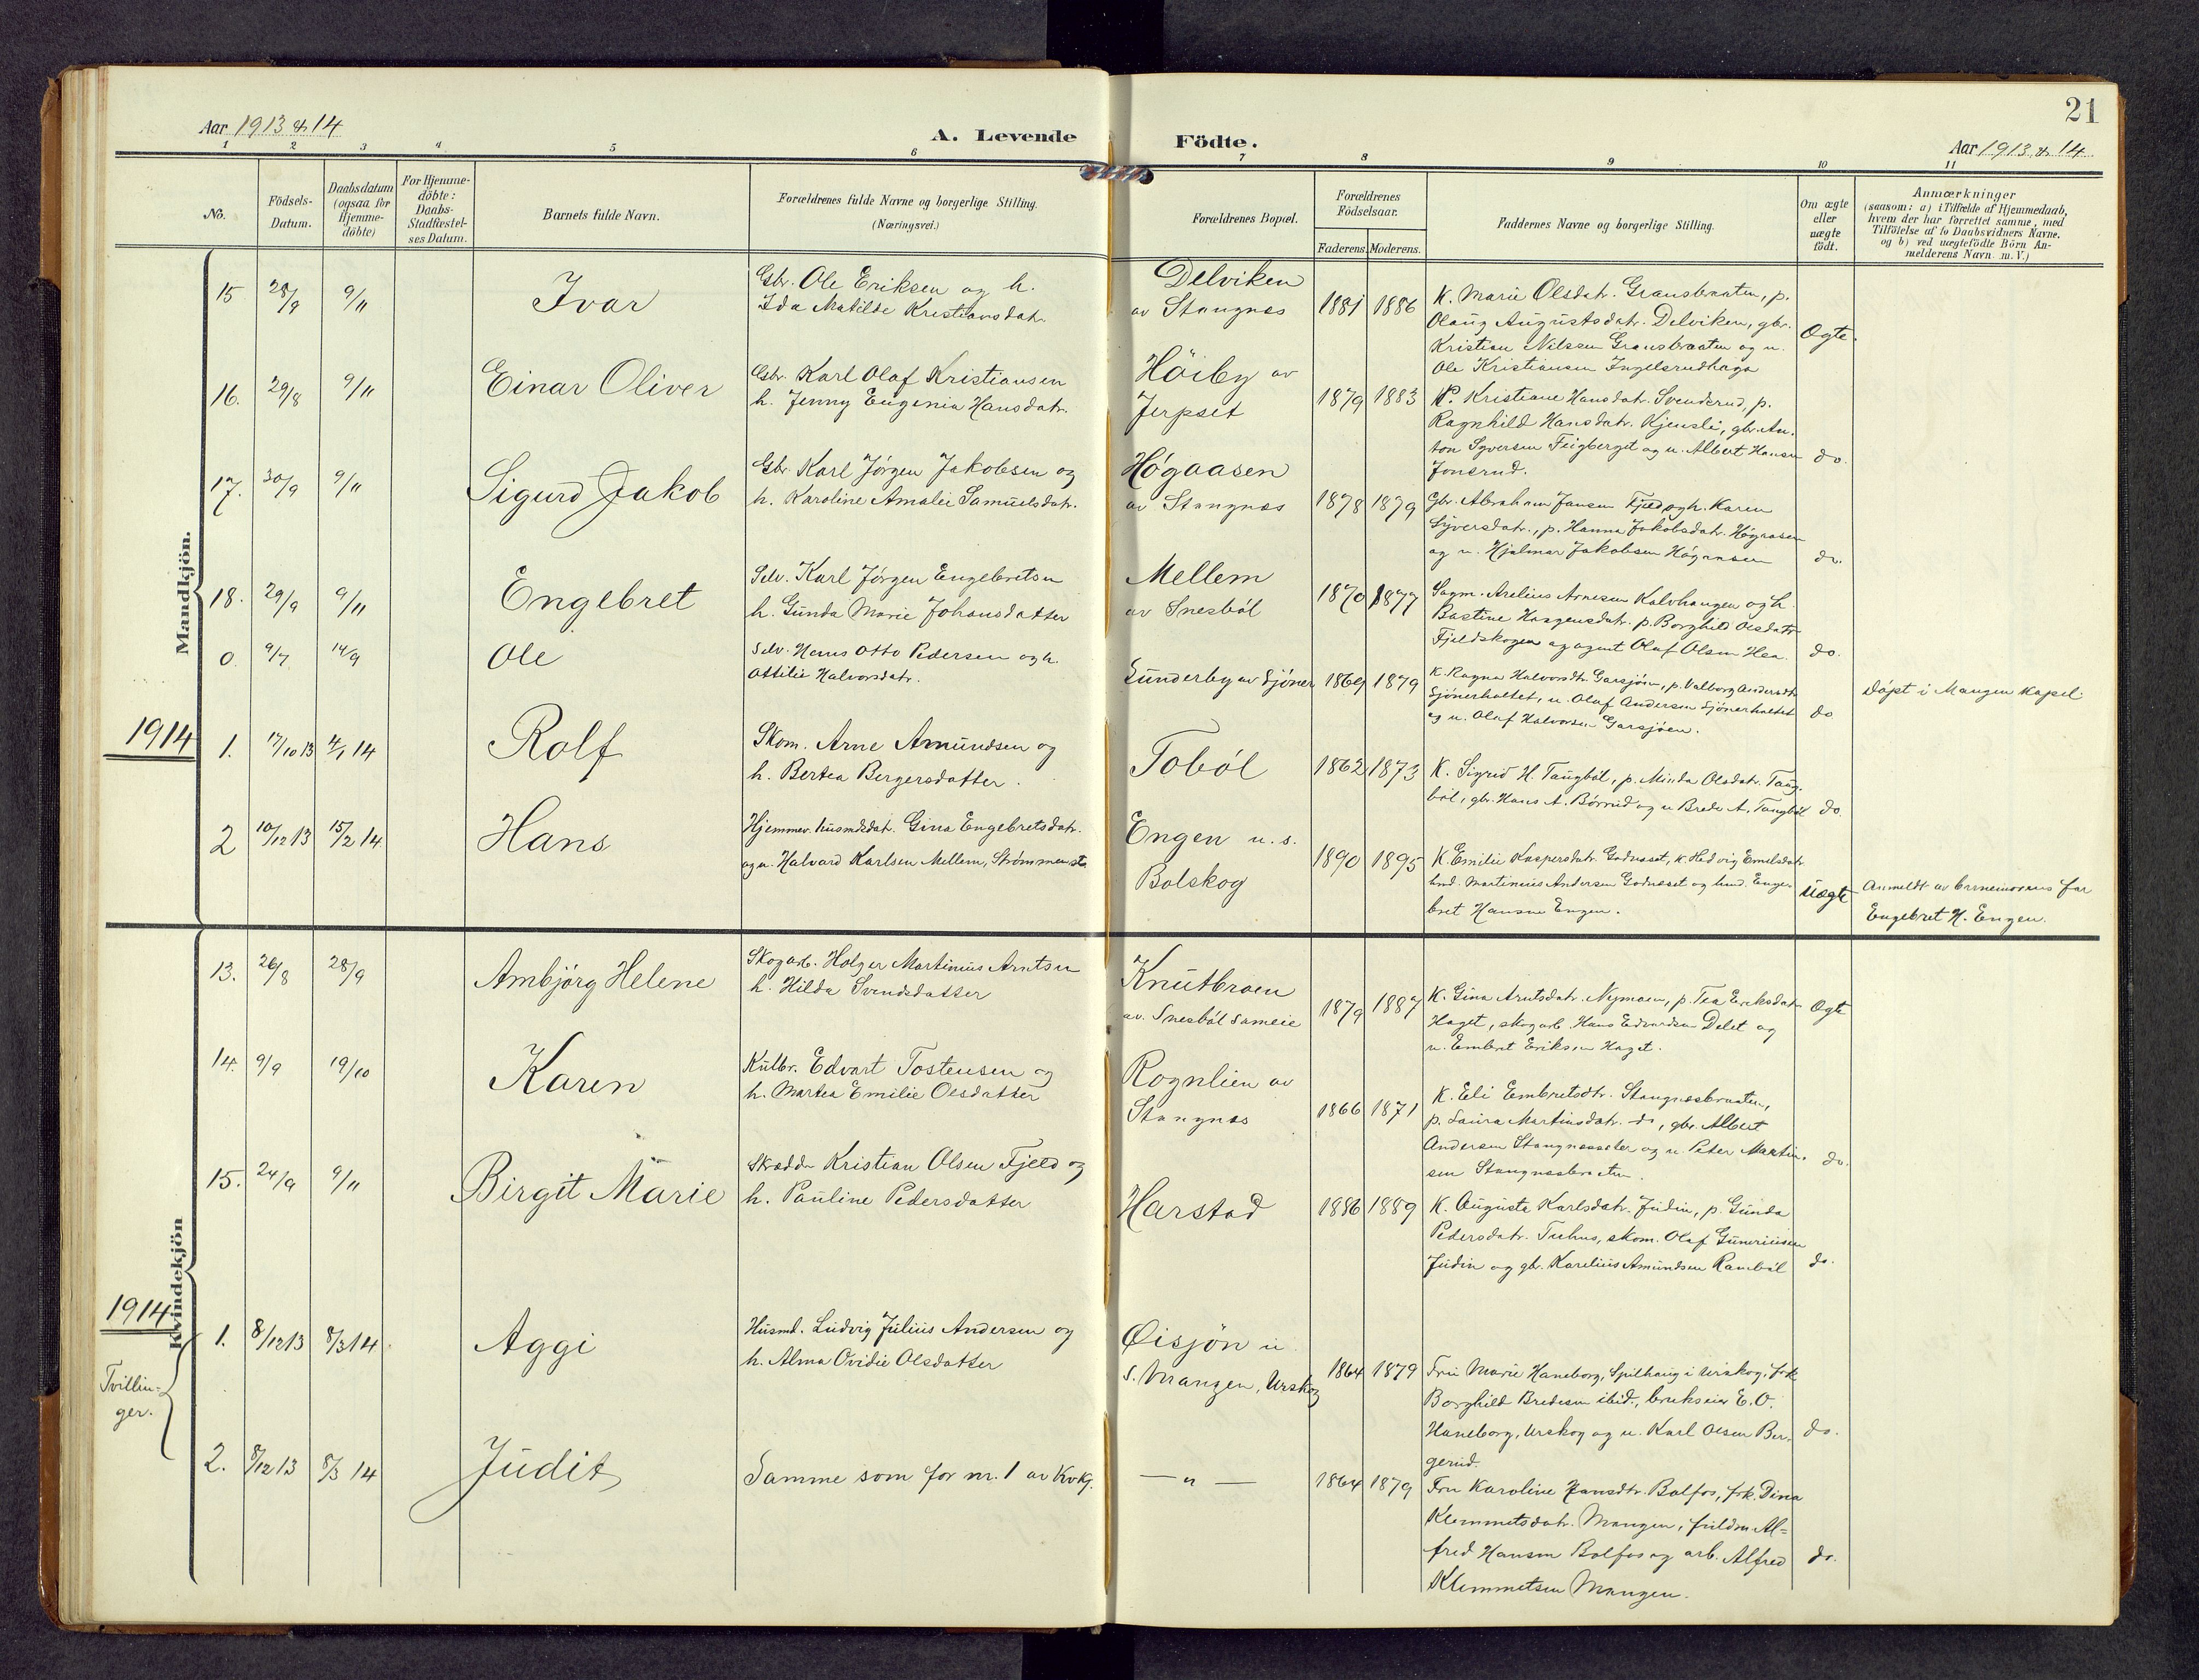 21
Aar 1913 & 14
A. Levende Födte.
Aar 1913 & 14
1 2 3 4 5 6 7 8 9 10 11
No.
Födsels-
Datum.
Daabsdatum
(ogsaa for
Hjemme-
döbte)
For Hjemme-
döbte:
Daabs-
Stadfæstel-
ses Datum.
Barnets fulde Navn.
Forældrenes fulde Navne og borgerlige Stilling.
(Næringsvei.)
Forældrenes Bopæl.
Forældrenes
Födselsaar.
Faderens. Moderens.
Faddernes Navne og borgerlige Stilling.
Om ægte
eller
uægte
födt.
Anmærkninger
(saasom: a) i Tilfælde af Hjemmedaab,
hvem der har forrettet samme, med
Tilföielse af to Daabsvidners Navne.
og b) ved uægtefödte Börn An-
melderens Navn m. V.)
Mandkjön.
15 28/9 9/11
Ivar
Gbr. Ole Eriksen og h.
Ida Matilde Kristiansdatr.
Delviken
av Stangnes
1881 1886
K. Marie Olsdatr. Gransbraaten, p.
Olaug Augustsdatr. Delviken, gbr.
Kristian Nilsen Gransbraaten og u.
Ole Kristiansen Ingelsrudhaga
Ogte.
16. 29/8 9/11
Einar Oliver
Gbr. Karl Olaf Kristiansen
h. Jenny Eugenia Hansdatr.
Höiby av
Jerpset
1879 1883
K. Kristiane Hansdatr. Svenderud, p.
Ragnhild Hansdatr. Kjensli, gbr. An-
ton Syversen Feigberget og u. Albert Hansen
Jonsrud.
do.
17. 30/9 9/11
Sigurd Jakob
Gbr. Karl Jörgen Jakobsen og
h. Karoline Amalie Samuelsdatr.
Högaasen
av Stangnes
1878 1879
Gbr. Abraham Jansen Fjeld og h. Karen
Syversdatr., p. Hanna Jakobsdatr. Högaasen
og u. Hjalmar Jakobsen Högaasen
do.
18. 29/9 9/11
Engebret
Selv. Karl Jörgen Engebretsen
h. Gunda Marie Johansdatter
Mellem
av Snesböl
1870 1877
Sagm. Arelius Arnesen Kalvhaugen og h.
Bastine Haagensdatr. p. Borghild Olsdatr.
Fjeldskogen og agent Olaf Olsen Hea.
do.
0. 9/7 14/9
Ole
Selv. Hans Otto Pedersen og h.
Ottilie Halvorsdatr.
Sunderby av Sjöner
1869 1879
K. Ragna Halvorsdtr. Garsjöen, p. Valborg Andersdtr.
Sjönerholtet, u. Olaf Andersen Sjönerholtet
og u. Olaf Halvorsen Garsjöen.
do
Döpt i Mangen kapel.
1914
1. 17/10 13 4/1 14
Rolf
Skom. Arne Amundsen og
h. Bertea Bergersdatter.
Toböl
1862 1873
K. Sigrid H. Taugböl, p. Minda Olsdatr. Taug-
böl, gbr. Hans A. Börrud og u. Brede A. Taugböl
do.
2 10/12 13 15/2 14.
Hans
Hjemmev. husmdsdat. Gina Engebretsdatr.
og u. Halvard Karlsen Mellem, Strömmen st.
Engen u. s.
Bolskog
1890 1895
K. Emilie Kaspersdatr. Godnaset, K. Hedvig Emilsdatr.
hmd. Martinius Andersen Godnaset og hmd. Enge-
bret Hansen Engen.
Uægte
Anmeldt av barnemorens far
Engebret H. Engen.
Kvindekjön
13. 26/8 28/9
Ambjörg Helene
Skogarb. Holger Martinius Arntsen
h. Hilda Svendsdatter
Knutbraen
av. Snesböl Sameie
1879 1887
K. Gina Arntsdatr. Nymoen, p. Tea Eriksdatr.
Haget, skogarb. Hans Edvardsen Delet og
u. Embret Eriksen Haget.
Ogte
14. 9/9 19/10
Karen
Kulbr. Edvart Tostensen og
h. Martea Emilie Olsdatter
Rognlien av
Stangnes
1866 1871
K. Eli Embretsdtr. Stangnesbraaten,
p. Laura Martinsdatr. do, gbr. Albert
Andersen Stangnesseter og u. Peter Martin-
sen Stangnesbraaten.
do.
15. 24/9 9/11
Birgit Marie
Skrædder Kristian Olsen Fjeld og
h. Pauline Pedersdatter
Harstad
1886 1889
K. Augusta Karlsdatr. Judin, p. Gunda
Pedersdatr. Tuhus, skom. Olaf Guneriussen
Judin og gbr. Karelius Amundsen Ramböl
do.
1914
Tvillin-
ger.
1. 8/12 13 8/3 14.
Aggi
Husmd. Ludvig Julius Andersen og
h. Alma Ovidie Olsdatter
Øisjön u.
s. Mangen, Urskog
1864 1879
Fru Marie Haneborg, Spilhaug i Urskog, frk.
Borghild Bredesen ibid., brukseier E. O.
Haneborg, Urskog og u. Karl Olsen Ber-
gerud.
do.
2. 8/12 13 8/3 14
Judit
Samme som for nr. 1 av Kvkj.
— " —
1864 1879
Fru Karoline Hansdtr. Bolfos, frk. Dina
Klemmetsdatr. Mangen, fuldm. Al-
fred Hansen Bolfos og arb. Alfred
Klemmetsen Mangen.
do.